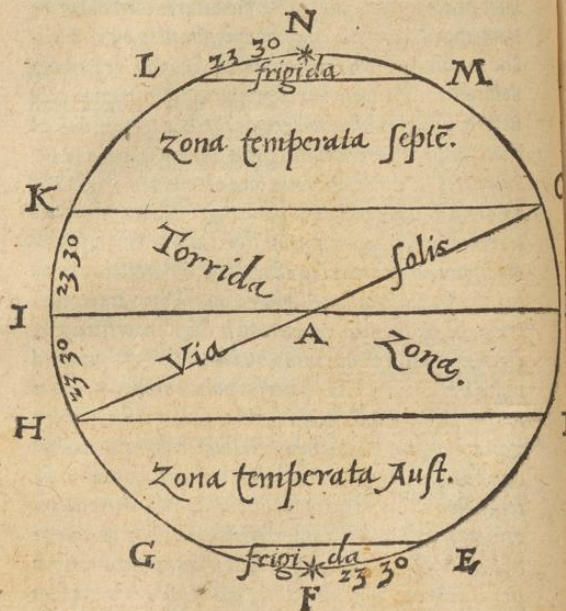 N
23 30
L
frigida
M
Zona temperata septē.
K
23 30
Torrida
Via Solis
I
A
23 30
Zona.
H
Zona temperata Aust.
G
frigi da
E
23 30
F